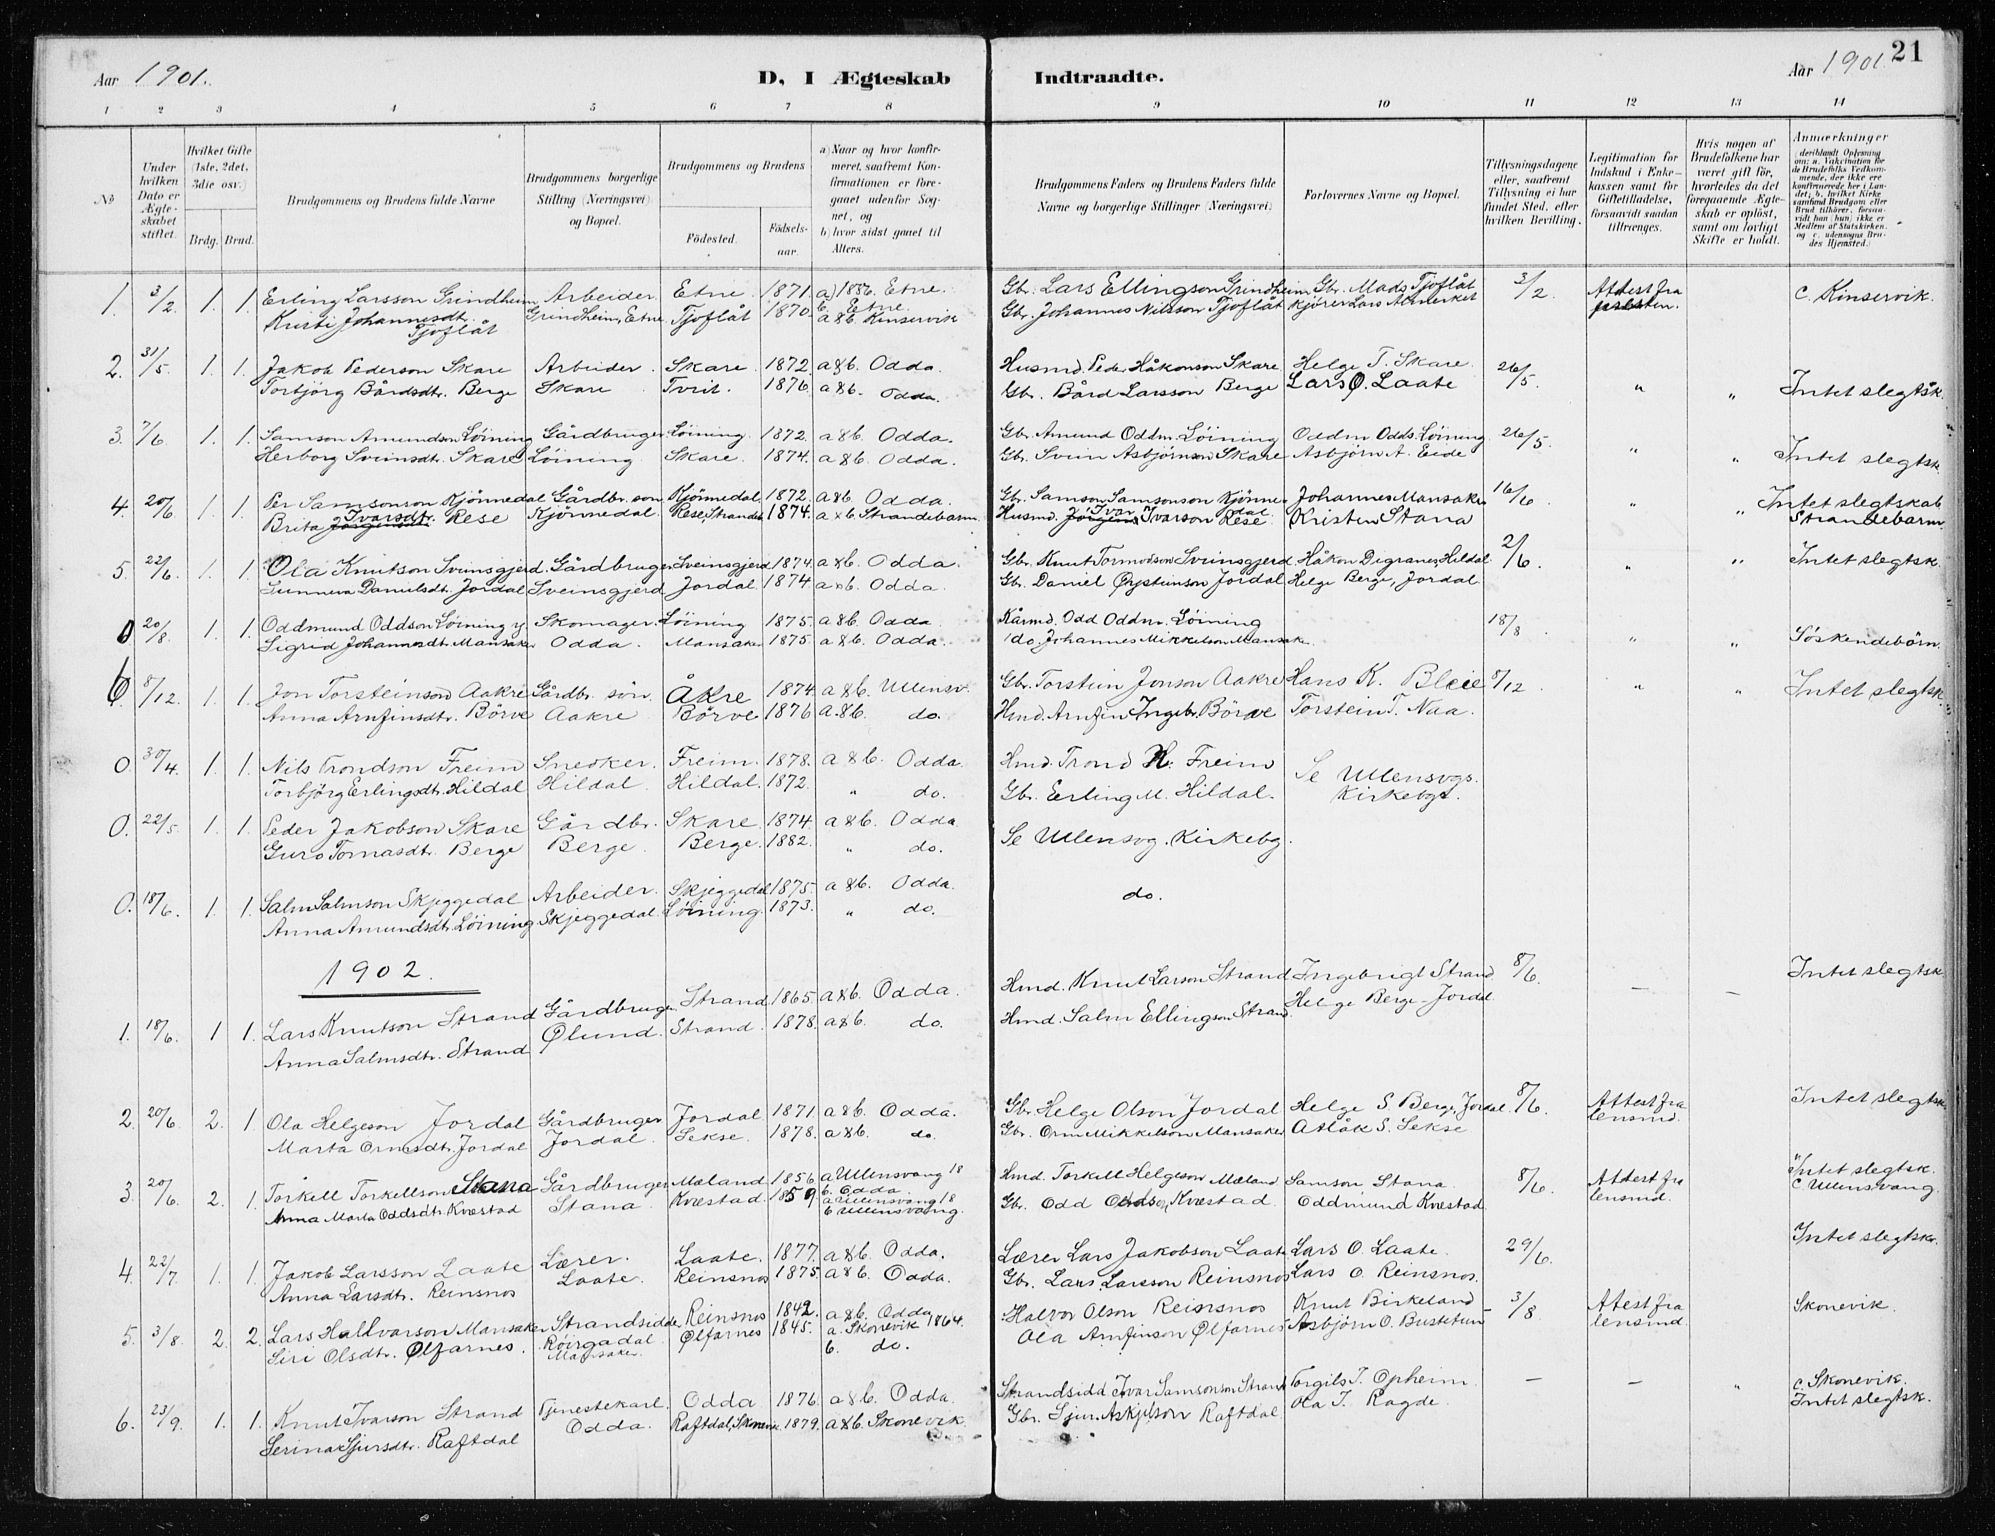 Aar 1901.
D, I Ægteskab Indtraadte.
Aar 1901 21
1 2 3 4 5 6 7 8 9 10 11 12 13 14
No
Under hvilken Dato er Ægteskabet stiftet.
Hvilket Gifte (1ste, 2det, 3die osv.)
Brdg. Brud.
Brudgommens og Brudens fulde Navne
Brudgommens borgerlige Stilling (Næringsvei) og Bopæl.
Brudgommens og Brudens
Födested. Födselsaar.
a) Naar og hvor konfirmeret, saafremt Konfirmationen er foregaaet udenfor Sognet, og
b) hvor sidst gaaet til Alters.
Brudgommens Faders og Brudens Faders fulde Navne og borgerlige Stillinger (Næringsvei)
Forlovernes Navne og Bopæl.
Tillysningsdagene eller, saafremt Tillysning ei har fundet Sted, efter hvilken Bevilling.
Legitimation for Indskud i Enkekassen samt for Giftetilladelse, forsaavidt saadan tiltrænges.
Hvis nogen af Brudefolkene har været gift för, hvorledes da det foregaaende Ægteskab er oplöst, samt om lovligt Skifte er holdt.
Anmærkninger (deriblandt Oplysning om: a. Vakcination for de Brudefolks Vedkommende, der ikke ere konfirmerede her i Landet; b. hvilket Kirkesamfund Brudgom eller Brud tilhörer, forsaavidt han (hun) ikke er Medlem af Statskirken, og c. udensogns Brudes Hjemsted.)
1. 3/2 1. 1. Erling Larsson Grindheim Arbeider Etne 1871. a) 1886 Etne. Gbr. Lars Ellingson Grindheim Gbr. Mads Tjoflåt 3/2. Attest fra c. Kinservik.
b. Etne.
Kristi Johannesdt. Tjoflåt Grindheim, Etne Tjoflåt 1870. a & b. Kinservik Gbr. Johannes Nilsson Tjoflåt
2. 31/5. 1. 1. Jakob Pederson Skare Arbeider. Skare. 1872. a & b. Odda. Husmd. Peder Håkonson Skare Helge T. Skare. 26/5. " " Intet slegtsk.
Torbjörg Bårdsdtr. Berge Skare Tveit. 1876. a & b. Odda. Gbr. Bård Larsson Berge Lars O. Laate
3. 7/6. 1. 1. Samson Amundson Löining Gårdbruger Löining. 1872. a & b. Odda. Gbr. Amund Oddm. Löining Oddm Odds. Löining 26/5. " " Intet slegtsk.
Herborg Sveinsdt. Skare Löining. Skare. 1874. a & b. Odda. Gbr. Svein Asbjörnson Skare Asbjörn A. Eide
4. 20/6 1. 1. Per Samsonson Kjönnedal Gårdbr. sön Kjönnedal. 1872. a & b. Odda. Gbr. Samson Samsonson Kjönnedal Johannes Mansaker 16/6 " " Intet slegtskab
Brita Ivarsdt. Rese Kjönnedal Rese, Strandeb. 1874. a & b. Strandebarm Husmd. Ivar Ivarson Rese Kristen Stana Strandebarm
5. 22/6. 1. 1. Ola Knutson Sveinsgjerd. Gårdbruger. Sveinsgjerd 1874. a & b. Odda. Gbr. Knut Tormodson Sveinsgjerd Håkon Digranes, Hildal 2/6. " " Intet slegtsk
Gunneva Danielsdt. Jordal Sveinsgjerd Jordal. 1874 a & b. Odda. Gbr. Daniel Öysteinson Jordal Helge Berge, Jordal
0 20/8. 1. 1. Oddmund Oddson Löining y. Skomager. Löining 1875. a & b. Odda Kårmd. Odd Oddm. Löining 18/8 " " Söskendebörn
Sigrid Johannesdt. Mansaker Odda. Mansaker 1875. a & b. Odda. do. Johannes Mikkelson Mansaker
6. 8/12. 1. 1. Jon Torsteinson Aakre Gårdbr. sön Åkre 1874. a & b. Ullensv. Gbr. Torstein Jonson Aakre Hans K. Bleie 8/12 " " Intet slegtsk.
Anna Arnfinsdtr. Börve Aakre Börve 1876 a. & b. do. Hmd. Arnfin Ingebr. Börve Torstein T. Naa.
0. 30/4. 1. 1. Nils Trondson Freim Snedker. Freim. 1878. a & b. Odda. Hmd. Trond H. Freim Se Ullensvgs.
Torbjörg Erlingsdt. Hildal Hildal Hildal. 1872. " do. Gbr. Erling M. Hildal. Kirkebgt.
0. 22/5. 1. 1. Peder Jakobson Skare Gårdbr. Skare. 1874. a & b. Odda. Se Ullensvg. Kirkebg.
Guro Tomasdt. Berge Berge. Berge. 1882. " do.
0. 18/6. 1. 1. Salm Salmson Skjeggedal Arbeider. Skjeggedal 1875. a & b. Odda. do.
Anna Amundsdt. Löining Skjeggedal. Löining. 1873. " do.
1902.
1. 18/6. 1 1. Lars Knutson Strand Gårdbruger. Strand 1865. a & b. Odda. Hmd. Knut Larson Strand Ingebrigt Strand 8/6. — — Intet slegtsk.
Anna Salmsdtr. Strand Ölund. Strand. 1878. a & b. do. Hmd. Salm Ellingson Strand. Helge Berge - Jordal
2. 20/6. 2. 1. Ola Helgeson Jordal Gårdbruger Jordal 1871. a & b. Odda. Gbr. Helge Olson Jordal Helge S. Berge, Jordal 8/6. Attest fra lensmd. Intet slegtsk.
Marta Ormsdtr. Jordal Jordal. Sekse. 1878. a & b. do. Gbr. Orm Mikkelson Mansaker Aslåk S. Sekse
3. 20/6. 2. 1. Torkell Torkellson Stana Gårdbruger Mæland 1856 a Ullensvang 18 b. Odda. Hmd. Torkell Helgeson Mæland Samson Stana. 8/6. Attest fra lensmd. Intet slegtsk.
Anna Marta Oddsdtr. Kvestad Stana. Kvestad 1859 a Ullensvang 18 b Ullensvang. Gbr. Odd Oddson Kvestad. Oddmund Kvestad c. Ullensvang.
4. 22/7. 1. 1. Jakob Larsson Laate Lærer. Laate. 1877. a & b. Odda. Lærer Lars Jakobson Laate Lars O. Laate. 29/6. Intet slegtsk.
Anna Larsdtr. Reinsnos Laate. Reinsnos 1875. a & b. Odda. Gbr. Lars Larsson Reinsnos Lars O. Reinsnos.
5. 3/8. 2. 2. Lars Hallvarson Mansaker Strandsidder Reinsnos 1842. a & b. Odda Halvor Olson Reinsnos Knut Birkeland 3/8. Attest fra lensmd. Skonevik.
Siri Olsdtr. Ölfarnes. Mansaker Ölfarnes 1845. a. Skonevik 1864. b. do. Ola Arnfinson Ölfarnes Asbjörn O. Bustetun
6. 23/9. 1. 1. Knut Ivarson Strand Tjenestekarl. Odda 1876. a & b. Odda. Strandsidd. Ivar Samsonson Strand Torgils T. Opheim — — " c. Skonevik.
Serina Sjursdtr. Raftdal Odda. Raftdal, Skonevik 1879. a & b. Skonevik. Gbr. Sjur Askjelson Raftdal Ola T. Ragde. Intet slegtsk.